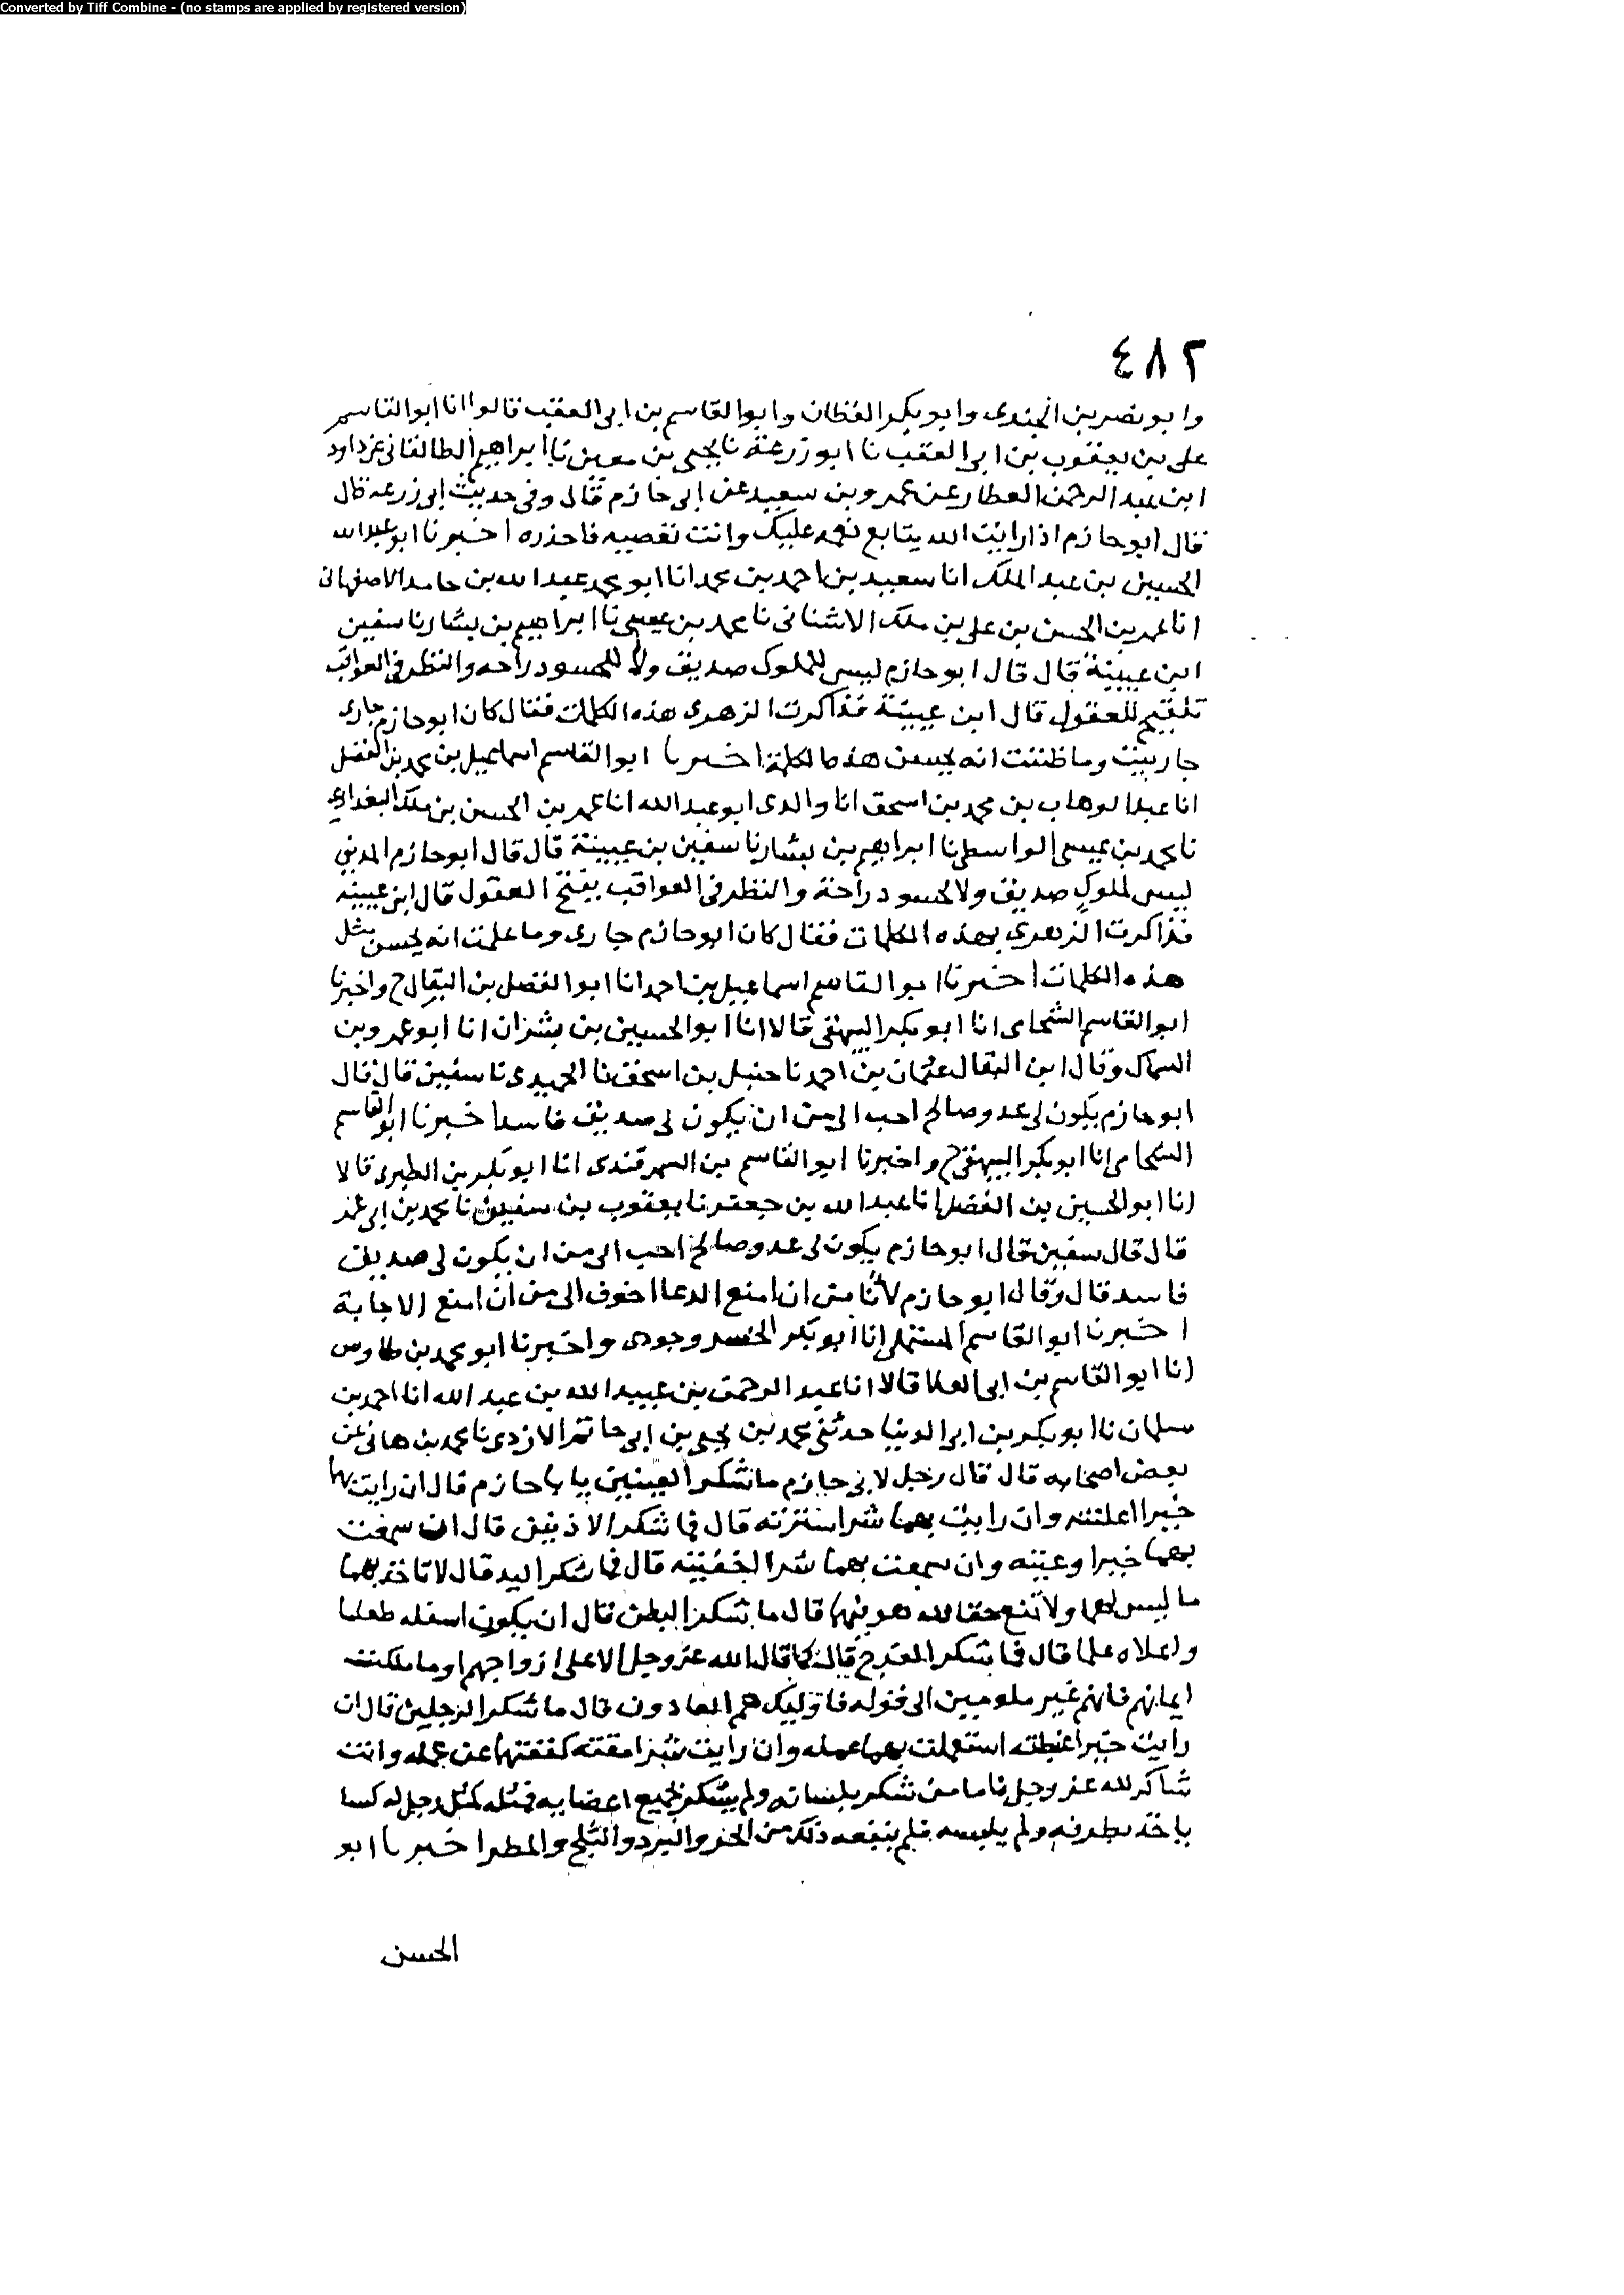 Converted by Tiff Combine - (no stamps are applied by registered version)
٤٨٢
وابو نصر بن الجندى وابو بكر القطان وابو القاسم بن ابى العقب قالوا انا ابو القاسم
على بن يعقوب بن ابى العقب نا ابو زرعة نا يحيى بن معين نا ابراهيم الطالقانى عن داود
ابن عبد الرحمن العطار عن عمرو بن سعيد عن ابى حازم قال وفى حديث ابى زرعه قال
قال ابو حازم اذا رايت الله يتابع نعمه عليك وانت تعصيه فاحذره اخبرنا ابو عبد الله
الحسين بن عبد الملك انا سعيد بن احمد بن محمد انا ابو محمد عبد الله بن حامد الاصفهانى
انا عمر بن الحسن بن على بن ملك الاشنانى نا محمد بن عيسى نا ابراهيم بن بشار نا سفين
ابن عيينة قال قال ابو حازم ليس للملوك صديق ولا للحسود راحه والنظر فى العواقب
تلقيح للعقول قال ابن عيينة فذاكرت الزهرى هذه الكلمات فقال كان ابو حازم جارى
جاربيت وما ظننت انه يحسن هذه الكلمة اخبرنا ابو القاسم اسماعيل بن محمد بن الفضل
انا عبد الوهاب بن محمد بن اسحق انا والدى ابو عبد الله انا عمر بن الحسن بن ملك البغدادى
نا محمد بن عيسى الواسطى نا ابراهيم بن بشار نا سفين بن عيينة قال قال ابو حازم المدينى
ليس لملوك صديق ولا لحسود راحة والنظر فى العواقب يفتح العقول قال ابن عيينه
فذاكرت الزهرى بهذه الكلمات فقال كان ابو حازم جارى وما علمت انه يحسن مثل
هذه الكلمات اخبرنا ابو القاسم اسماعيل بن احمد انا ابو الفضل بن البقال ح واخبرنا
ابو القاسم الشحامى انا ابو بكر البيهقى قالا انا ابو الحسين بن بشران انا ابو عمرو بن
السماك وقال ابن البقال عثمان بن احمد نا حنبل بن اسحق نا الحميدى نا سفين قال قال
ابو حازم يكون لى عدو صالح احب الى من ان يكون لى صديق فاسد اخبرنا ابو القاسم
الشحامى انا ابو بكر البيهقى ح واخبرنا ابو القاسم بن السمرقندى انا ابو بكر بن الطبرى قالا
انا ابو الحسين بن الفضل انا عبد الله بن جعفر نا يعقوب بن سفين نا محمد بن ابى عمر
قال قال سفين قال ابو حازم يكون لى عدو صالح احب الى من ان يكون لى صديق
فاسد قال وقال ابو حازم لأنا من ان امنع الدعا اخوف الى من ان امنع الاجابة
اخبرنا ابو القاسم المستملى انا ابو بكر الخسروجردى واخبرنا ابو محمد بن طاوس
انا ابو القاسم بن ابى العلا قالا انا عبد الرحمن بن عبيد الله بن عبد الله انا احمد بن
سلمان نا ابو بكر بن ابى الدنيا حدثنى محمد بن يحيى بن ابى حاتم الازدى نا محمد بن هانى عن
بعض اصحابه قال قال رجل لابى حازم ما شكر العينين يا با حازم قال ان رايت بهما
خيرا اعلنته وان رايت بهما شرا سترته قال فما شكر الاذنين قال ان سمعت
بهما خيرا وعيته وان سمعت بهما شرا اخفيته قال فما شكر اليد قال لا تاخذ بهما
ما ليس لهما ولا تمنع حقا لله هو فيهما قال ما شكر البطن قال ان يكون اسفله طعاما
واعلاه علما قال فما شكر الفرج قال كما قال الله عز وجل الا على ازواجهم او ما ملكت
ايمانهم فانهم غير ملومين الى قوله فاوليك هم العادون قال ما شكر الرجلين قال ان
رايت خيرا غبطته استعملت بهما عمله وان رايت شرا مقته كففتهما عن عمله وانت
شاكر لله عز وجل فاما من شكر بلسانه ولم يشكر بجميع اعضايه فمثله كمثل رجل له كسا
ياخذ بطرفه ولم يلبسه فلم ينفعه ذلك من الحر والبرد والثلج والمطر اخبرنا ابو
الحسن